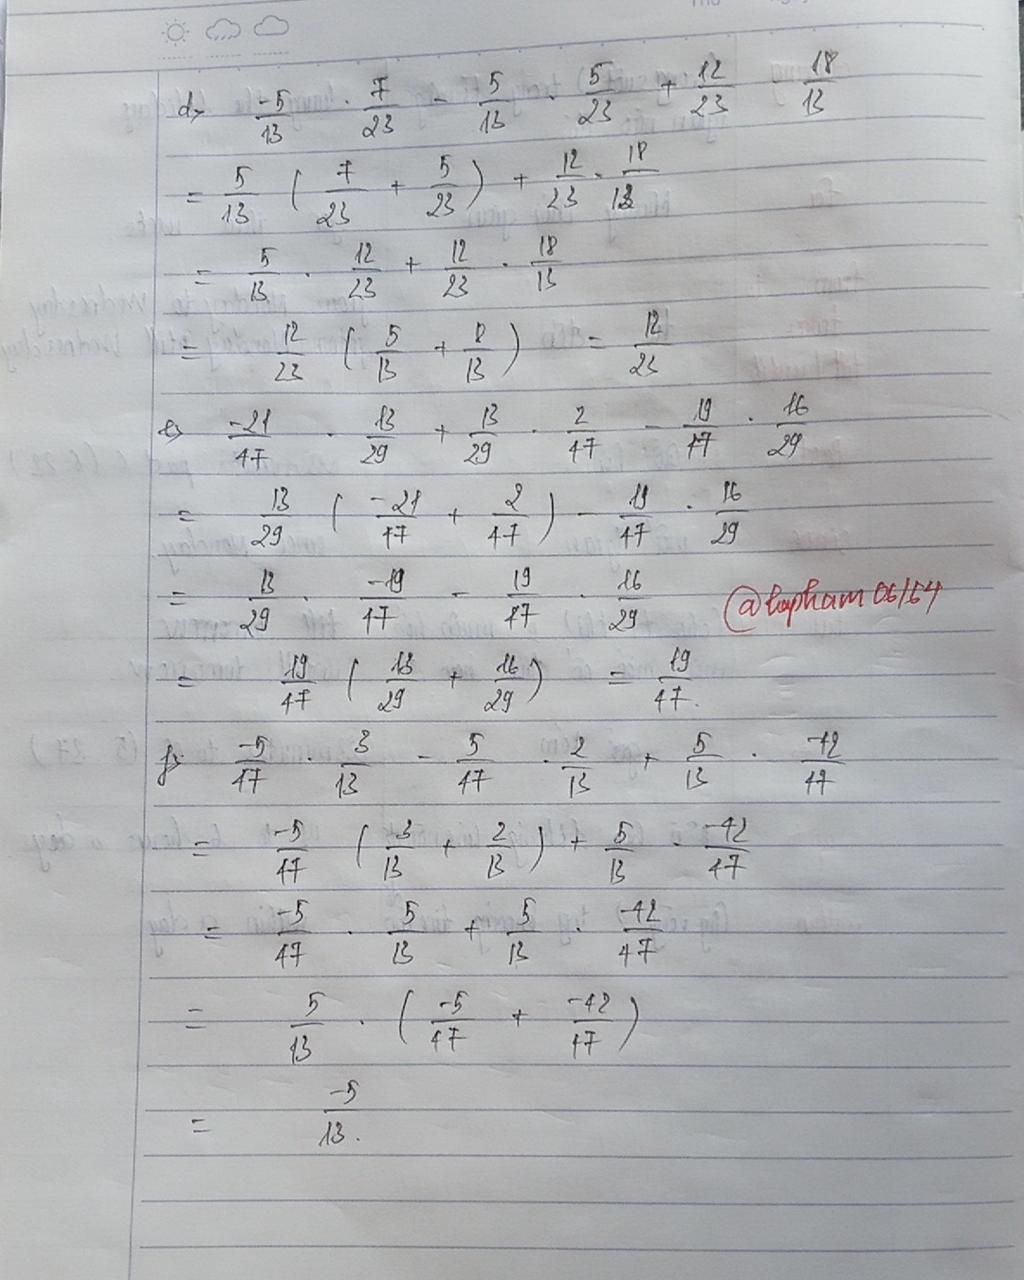 d, -5/13 . 7/23 - 5/13 . 5/23 + 12/23 . 18/13
= 5/13 ( 7/23 + 5/23 ) + 12/23 . 18/13
= 5/13 . 12/23 + 12/23 . 18/13
= 12/23 ( 5/13 + 8/13 ) = 12/23
e, -21/47 . 13/29 + 13/29 . 2/47 - 19/47 . 16/29
= 13/29 ( -21/47 + 2/47 ) - 19/47 . 16/29
= 13/29 . -19/47 - 19/47 . 16/29
@lapham06154
= 19/47 ( 13/29 + 16/29 ) = 19/47.
f, -5/47 . 3/13 - 5/47 . 2/13 + 5/13 . -42/47
= -5/47 ( 3/13 + 2/13 ) + 5/13 . -42/47
= -5/47 . 5/13 + 5/13 . -42/47
= 5/13 . ( -5/47 + -42/47 )
= -5/13.